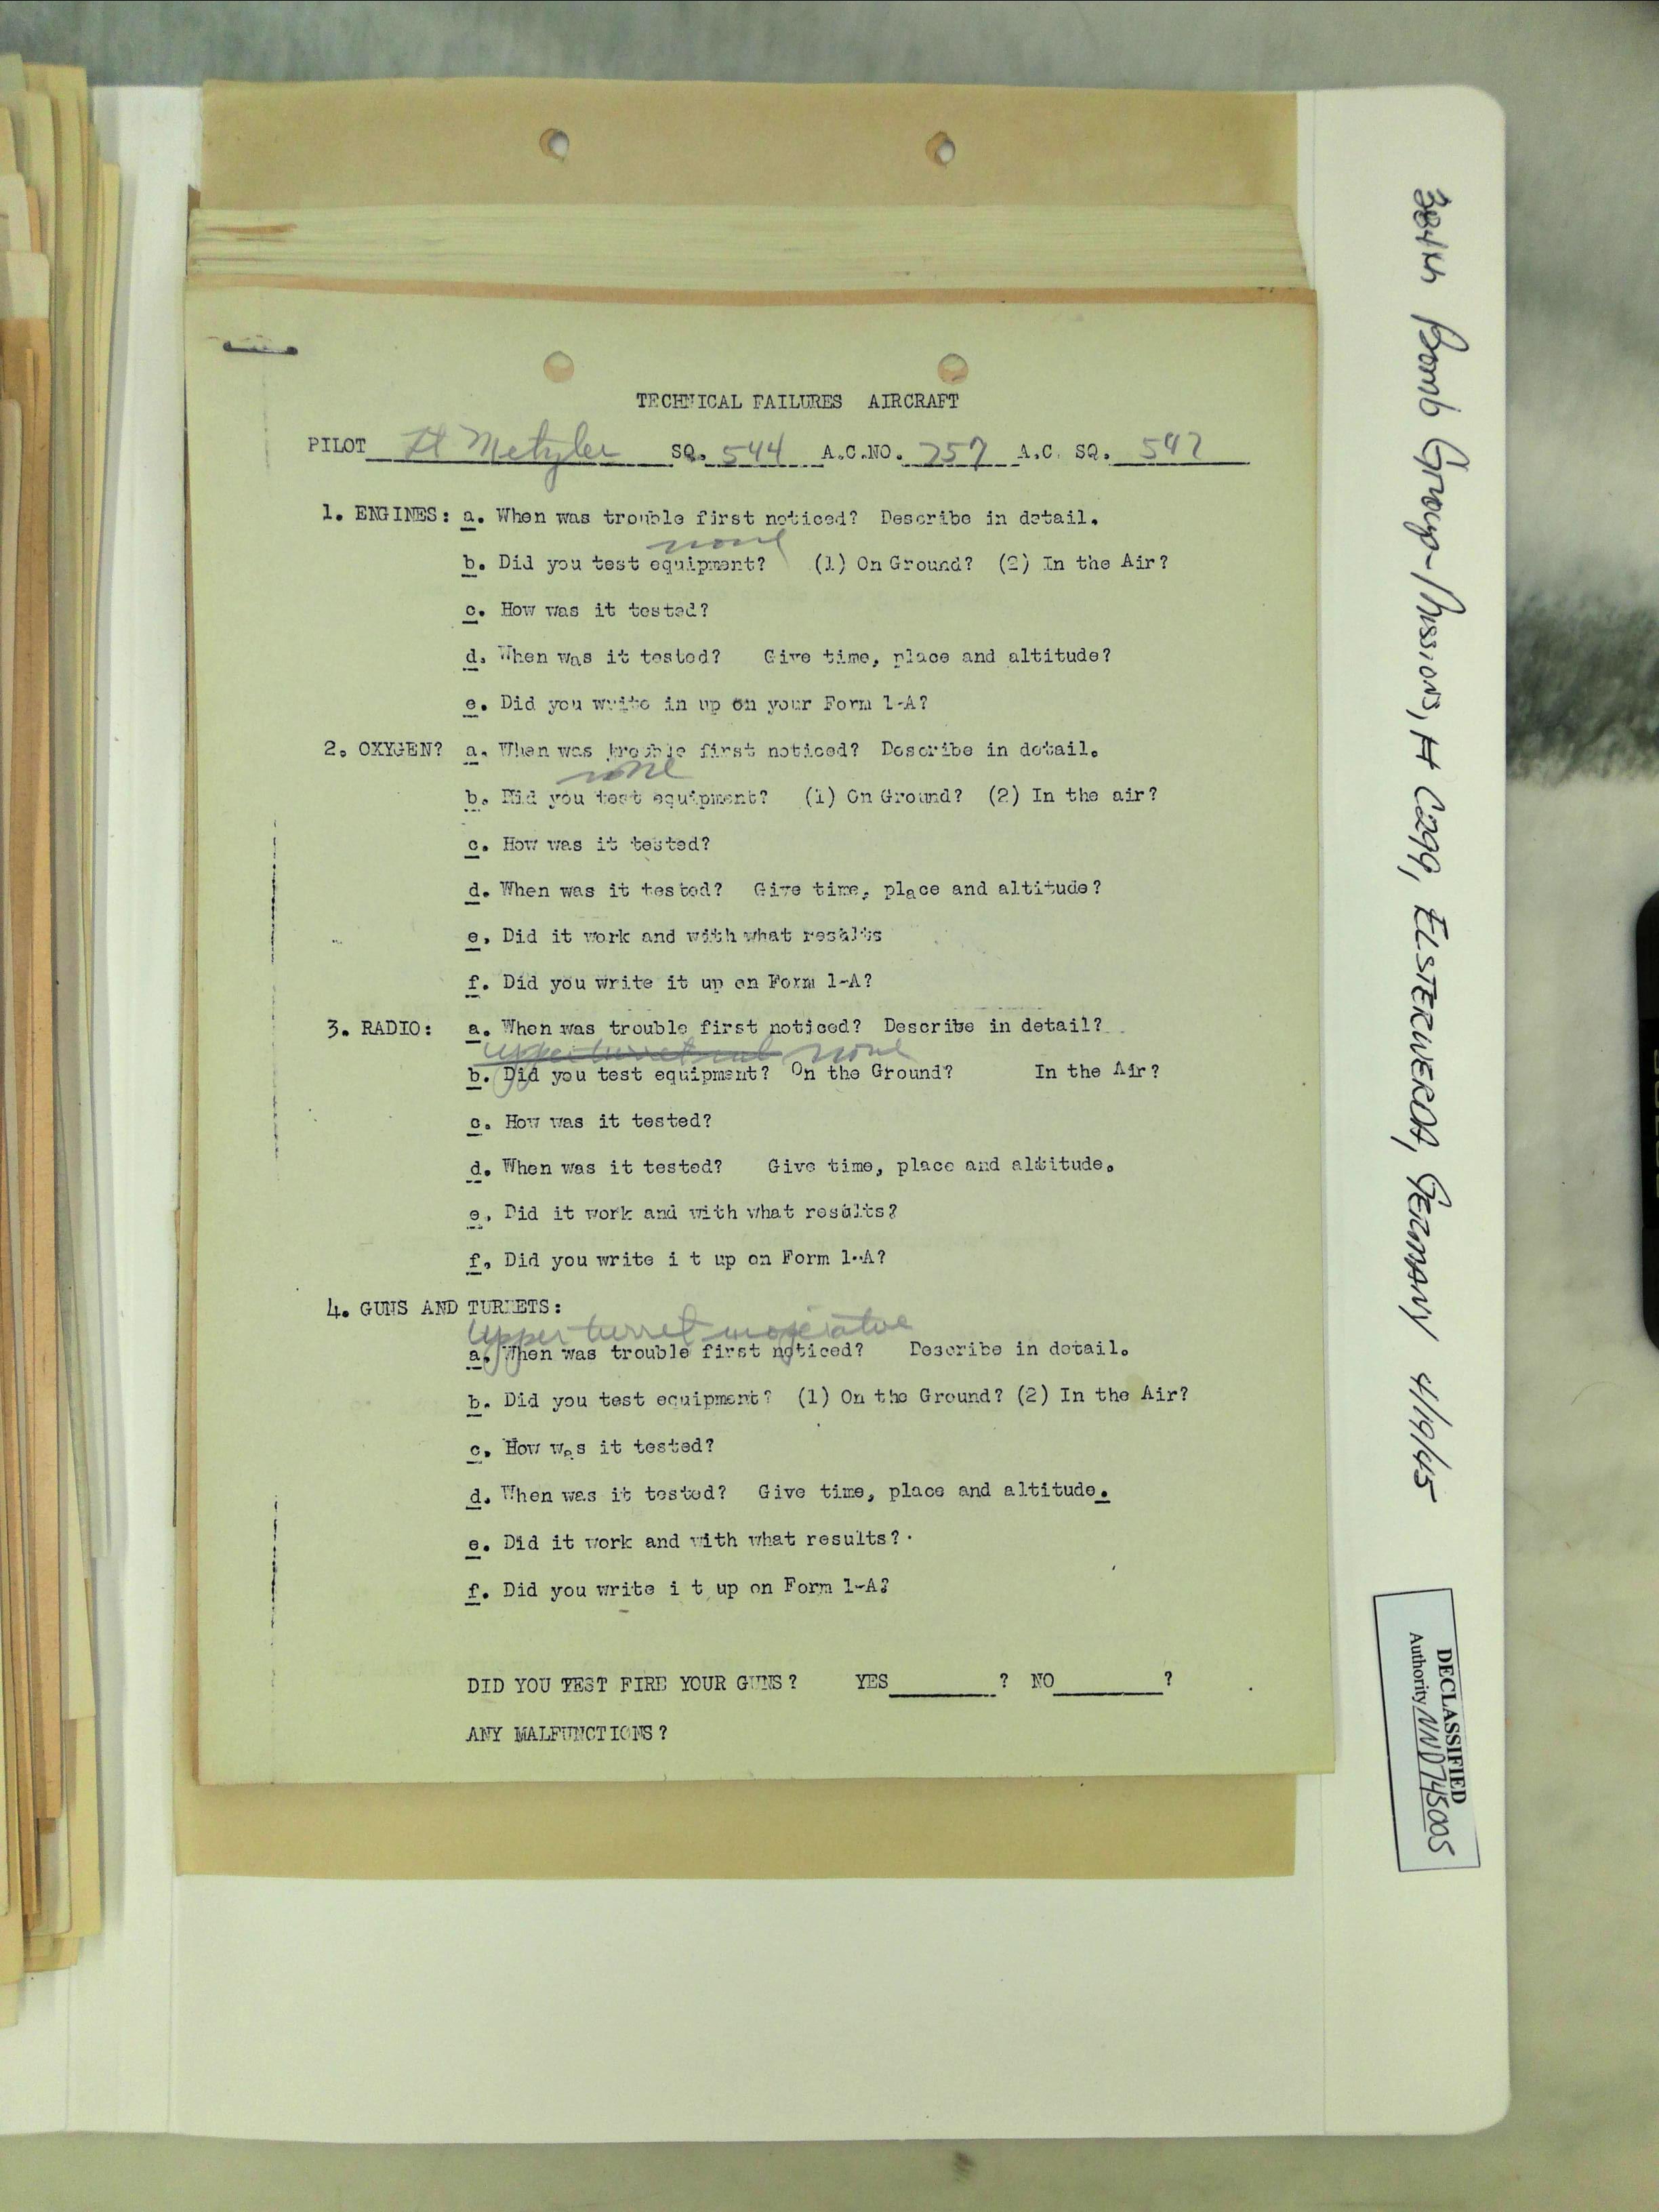 TECHNICAL FAILURES AIRCRAFT
PILOT Lt Metzler SQ. 544 A.C.NO. 757 A.C. SQ. 547
1. ENGINES: a. When was trouble first noticed? Describe in detail.
none
b. Did you test equipment? (1) On Ground? (2) In the Air?
c. How was it tested?
d. When was it tested? Give time, place and altitude?
e. Did you write in up on your Form 1-A?
2. OXYGEN? a. When was trouble first noticed? Describe in detail.
none
b. Did you test equipment? (1) On Ground? (2) In the air?
c. How was it tested?
d. When was it tested? Give time, place and altitude?
e. Did it work and with what results
f. Did you write it up on Form 1-A?
3. RADIO: a. When was trouble first noticed? Describe in detail?
Upper turret none
b. Did you test equipment? On the Ground? In the Air?
c. How was it tested?
d. When was it tested? Give time, place and altitude.
e. Did it work and with what results?
f. Did you write i t up on Form 1-A?
4. GUNS AND TURRETS:
Upper turret inoperative
a. When was trouble first noticed? Describe in detail.
b. Did you test equipment? (1) On the Ground? (2) In the Air?
c. How was it tested?
d. When was it tested? Give time, place and altitude.
e. Did it work and with what results?
f. Did you write i t up on Form 1-A?
DID YOU TEST FIRE YOUR GUNS? YES ? NO ?
ANY MALFUNCTIONS?
384th Bomb Group-Missions, # C299, ELSTERWERDA, GERMANY 4/19/45
DECLASSIFIED
Authority NND 745005